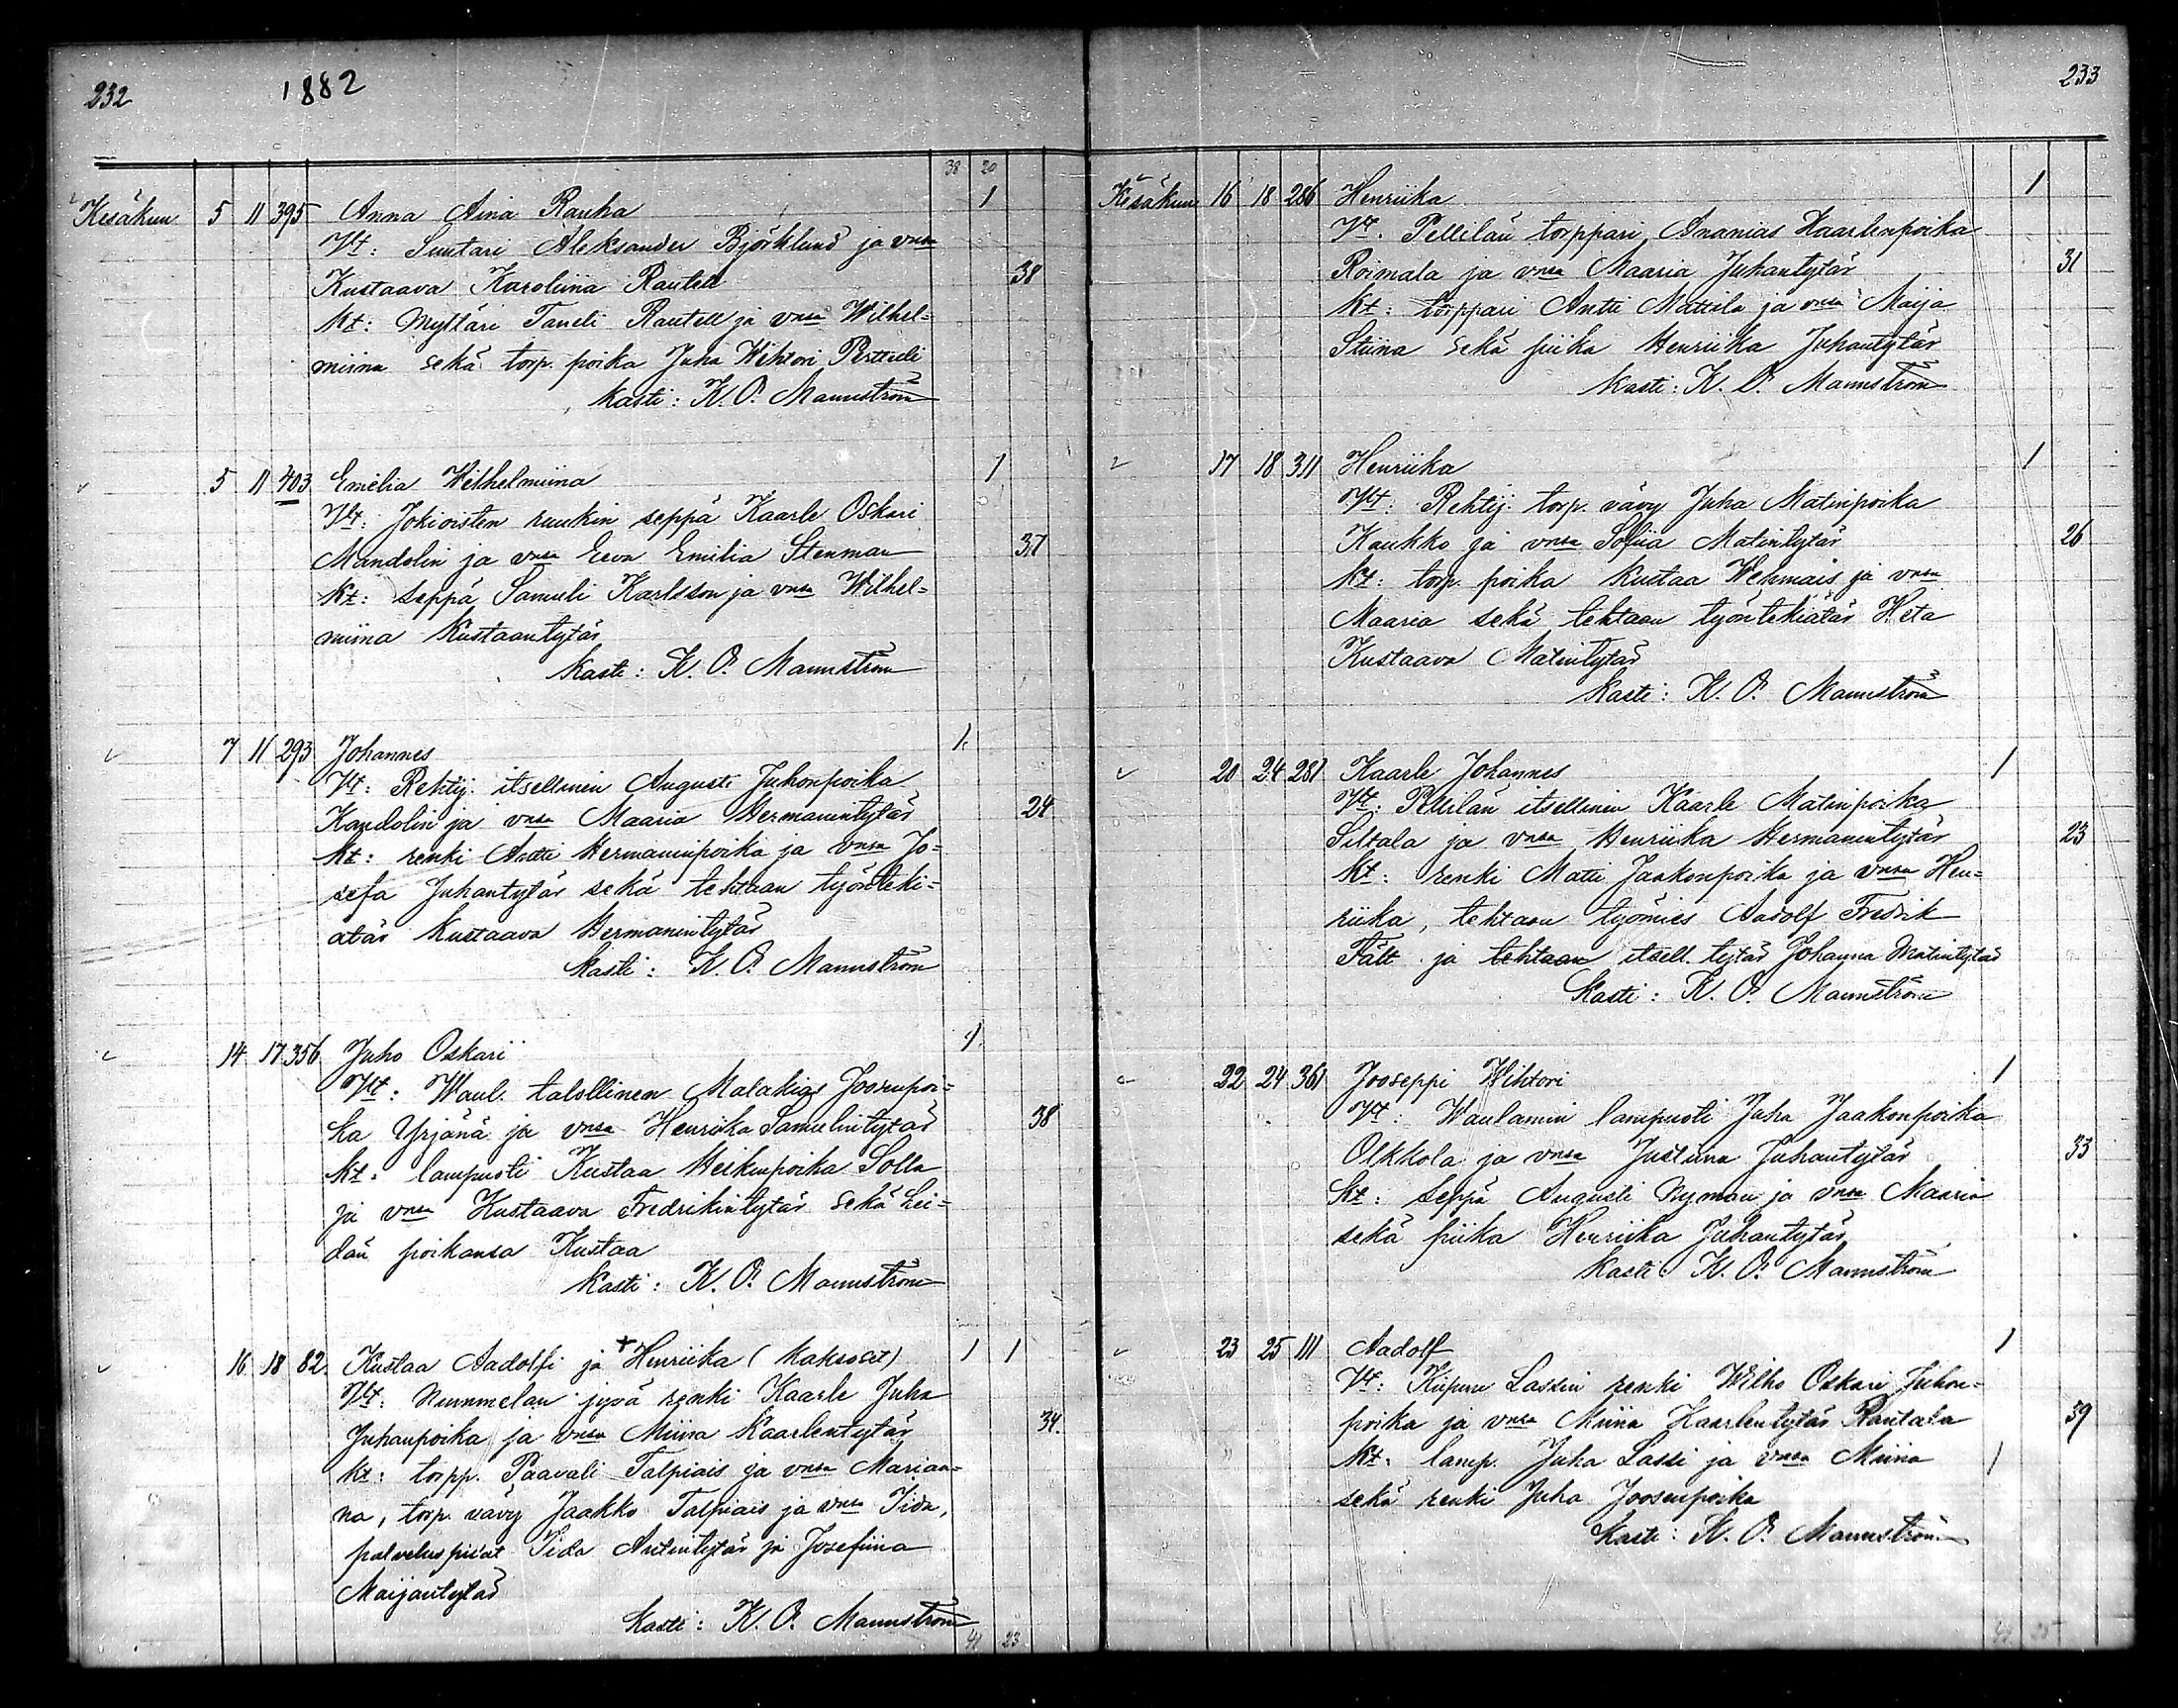 232
1882
38 20
Kesäkuu 5 11 395 Anna Aina Rauha 1
Vt: Suutari Aleksander Björklund ja vmsa
Kustaava Karoliina Rautell 38
Kt: Mylläri Taneli Rautell ja vmsa Wilhel=
miina sekä torp. poika Juha Wihtori Perttuli
Kasti: K. O. Mannström
5 11 403 Emilia Wilhelmiina 1
Vt: Jokioisten ruukin seppä Kaarle Oskari
Mandolin ja vmsa Eeva Emilia Stenman 37
Kt: Seppä Samuli Karlsson ja vmsa Wilhel=
miina Kustaantytär
Kasti: K. O. Mannström
7 11 293 Johannes 1
Vt: Rehtij. itsellinen Augusti Juhonpoika
Kandolin ja vmsa Maaria Hermanintytär 24
Kt: renki Antti Hermaninpoika ja vmsa Jo=
sefa Juhantytär sekä tehtaan työnteki=
ätär Kustaava Hermanintytär
Kasti: K. O. Mannström
14 17 356 Juho Oskari 1
Vt: Waul. talollinen Malakias Joosunpoi=
ka Yrjänä ja vmsa Henriika Samulintytär 38
Kt: lampuoti Kustaa Heikinpoika Solla
ja vmsa Kustaava Fredrikintytär sekä hei=
dän poikansa Kustaa
Kasti: K. O. Mannström
16 18 82. Kustaa Aadolfi ja + Henriika (kaksoset) 1 1
Vt: Nummelan jyvä renki Kaarle Juha
Juhanpoika ja vmsa Miina Kaarlentytär 34.
Kt: torpp. Paavali Talpiais ja vmsa Marian=
na, torp. vävy Jaakko Talpiais ja vmsa Iida,
palveluspiiat Iida Antintytär ja Josefiina
Maijantytär
Kasti: K. O. Mannström
41 23
233
Kesäkuu 16 18 286 Henriika 1
Vt. Pellilän torppari Ananias Kaarlenpoika
Roimala ja vmsa Maaria Juhantytär 31
Kt: torppari Antti Mattila ja vmsa Maija
Stiina sekä piika Henriika Juhantytär
Kasti: K. O. Mannström
17 18 311 Henriika 1
Vt: Rehtij. torp. vävy Juha Matinpoika
Kaukko ja vmsa Sofiia Matintytär 26
Kt: torp. poika Kustaa Wehmais ja vmsa
Maaria sekä tehtaan työntekiätär Heta
Kustaava Matintytär
Kasti: K. O. Mannström
20 24 281 Kaarle Johannes 1
Vt: Pellilän itsellinen Kaarle Matinpoika
Siltala ja vmsa Henriika Hermanintytär 23
Kt: renki Matti Jaakonpoika ja vmsa Hen=
riika, tehtaan työmies Aadolf Fredrik
Fält ja tehtaan itsell. tytär Johanna Matintytär
Kasti: K. O. Mannström
22 24 361 Jooseppi Wihtori 1
Vt: Waulamin lampuoti Juha Jaakonpoika
Olkkola ja vmsa Justiina Juhantytär 33
Kt: Seppä Augusti Nyman ja vmsa Maaria
sekä piika Henriika Juhantytär
Kasti: K. O. Mannström
23 25 111 Aadolf 1
Vt: Kiipun Lassin renki Wilho Oskari Juhon=
poika ja vmsa Miina Kaarlentytär Rautala 39
Kt: lamp. Juha Lassi ja vmsa Miina 1
sekä renki Juha Joosenpoika
Kasti: K. O. Mannström
44 25